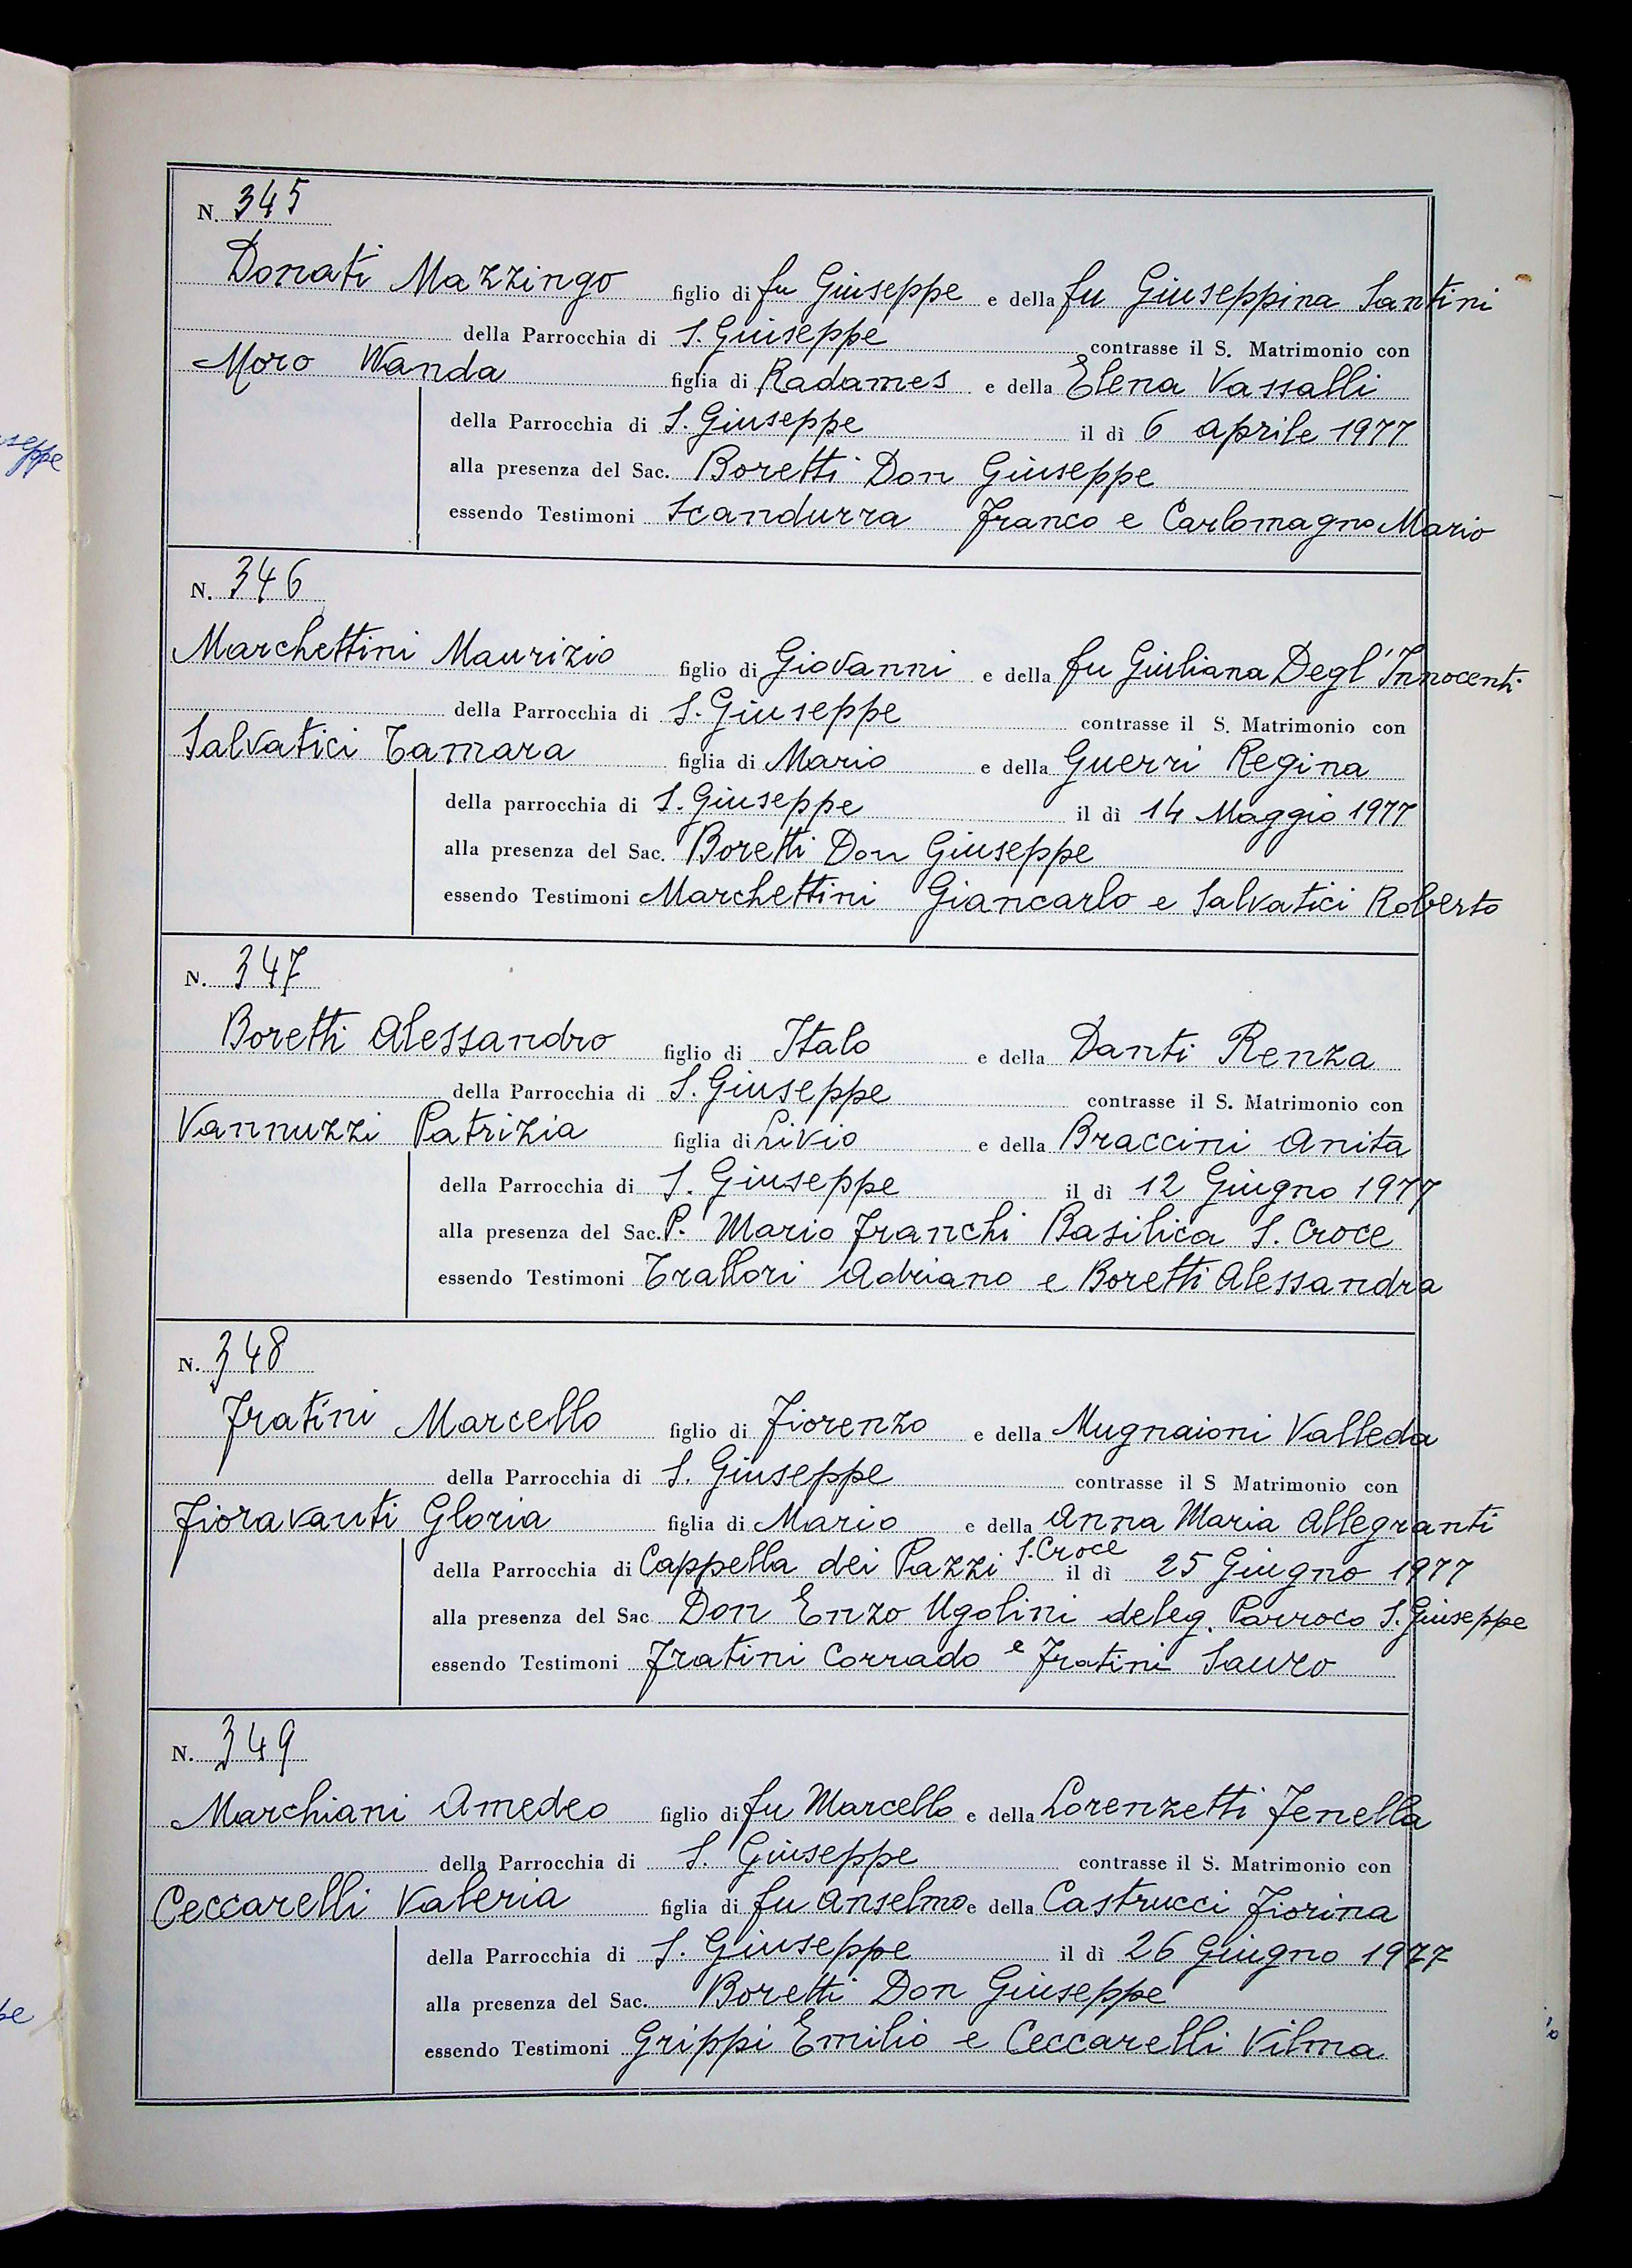 N. 345
Donati Mazzingo figlio di fu Giuseppe e della fu Giuseppina Santini
della Parrocchia di S. Giuseppe contrasse il S. Matrimonio con
Moro Wanda figlia di Radames e della Elena Vassalli
della Parrocchia di S. Giuseppe il dì 6 aprile 1977
alla presenza del Sac. Boretti Don Giuseppe
essendo Testimoni Scandurra Franco e Carlomagno Mario
N. 346
Marchettini Maurizio figlio di Giovanni e della fu Giuliana Degl'Innocenti
della Parrocchia di S. Giuseppe contrasse il S. Matrimonio con
Salvatici Tamara figlia di Mario e della Guerri Regina
della parrocchia di S. Giuseppe il dì 14 Maggio 1977
alla presenza del Sac. Boretti Don Giuseppe
essendo Testimoni Marchettini Giancarlo e Salvatici Roberto
N. 347
Boretti Alessandro figlio di Italo e della Danti Renza
della Parrocchia di S. Giuseppe contrasse il S. Matrimonio con
Vannuzzi Patrizia figlia di Livio e della Braccini Anita
della Parrocchia di S. Giuseppe il dì 12 Giugno 1977
alla presenza del Sac. P. Mario Franchi Basilica S. Croce
essendo Testimoni Trallori Adriano e Boretti Alessandra
N. 348
Fratini Marcello figlio di Fiorenzo e della Mugnaioni Valleda
della Parrocchia di S. Giuseppe contrasse il S Matrimonio con
Fioravanti Gloria figlia di Mario e della Anna Maria Allegranti
della Parrocchia di Cappella dei Pazzi S. Croce il dì 25 Giugno 1977
alla presenza del Sac Don Enzo Ugolini deleg. Parroco S. Giuseppe
essendo Testimoni Fratini Corrado e Fratini Sauro
N. 349
Marchiani Amedeo figlio di fu Marcello e della Lorenzetti Fenella
della Parrocchia di S. Giuseppe contrasse il S. Matrimonio con
Ceccarelli Valeria figlia di fu Anselmo e della Castrucci Fiorina
della Parrocchia di S. Giuseppe il dì 26 Giugno 1977
alla presenza del Sac. Boretti Don Giuseppe
essendo Testimoni Grippi Emilio e Ceccarelli Vilma